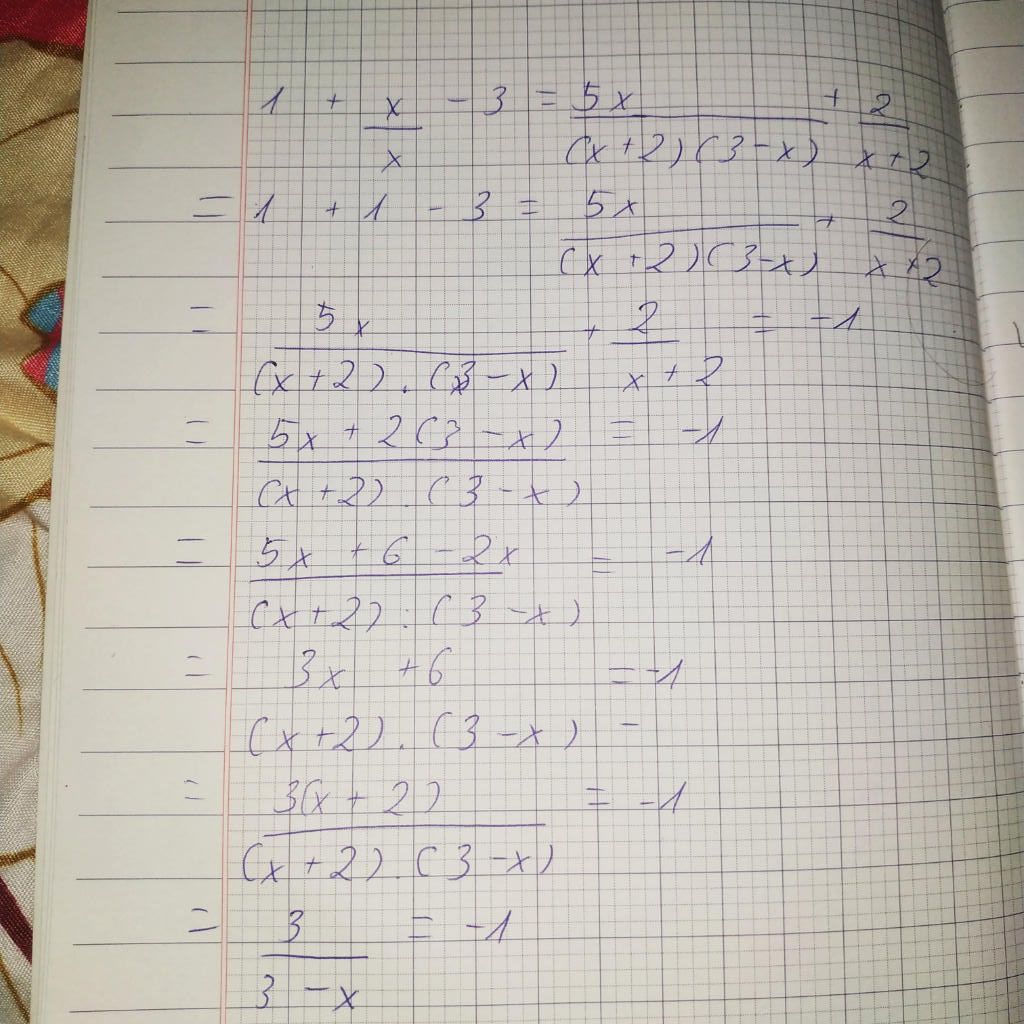 1 + x/x - 3 = 5x/((x+2)(3-x)) + 2/(x+2)
= 1 + 1 - 3 = 5x/((x+2)(3-x)) + 2/(x+2)
= 5x/((x+2).(3-x)) + 2/(x+2) = -1
= (5x+2(3-x))/((x+2).(3-x)) = -1
= (5x+6-2x)/((x+2).(3-x)) = -1
= 3x+6 = -1
(x+2).(3-x) -
= 3(x+2)/((x+2).(3-x)) = -1
= 3/(3-x) = -1